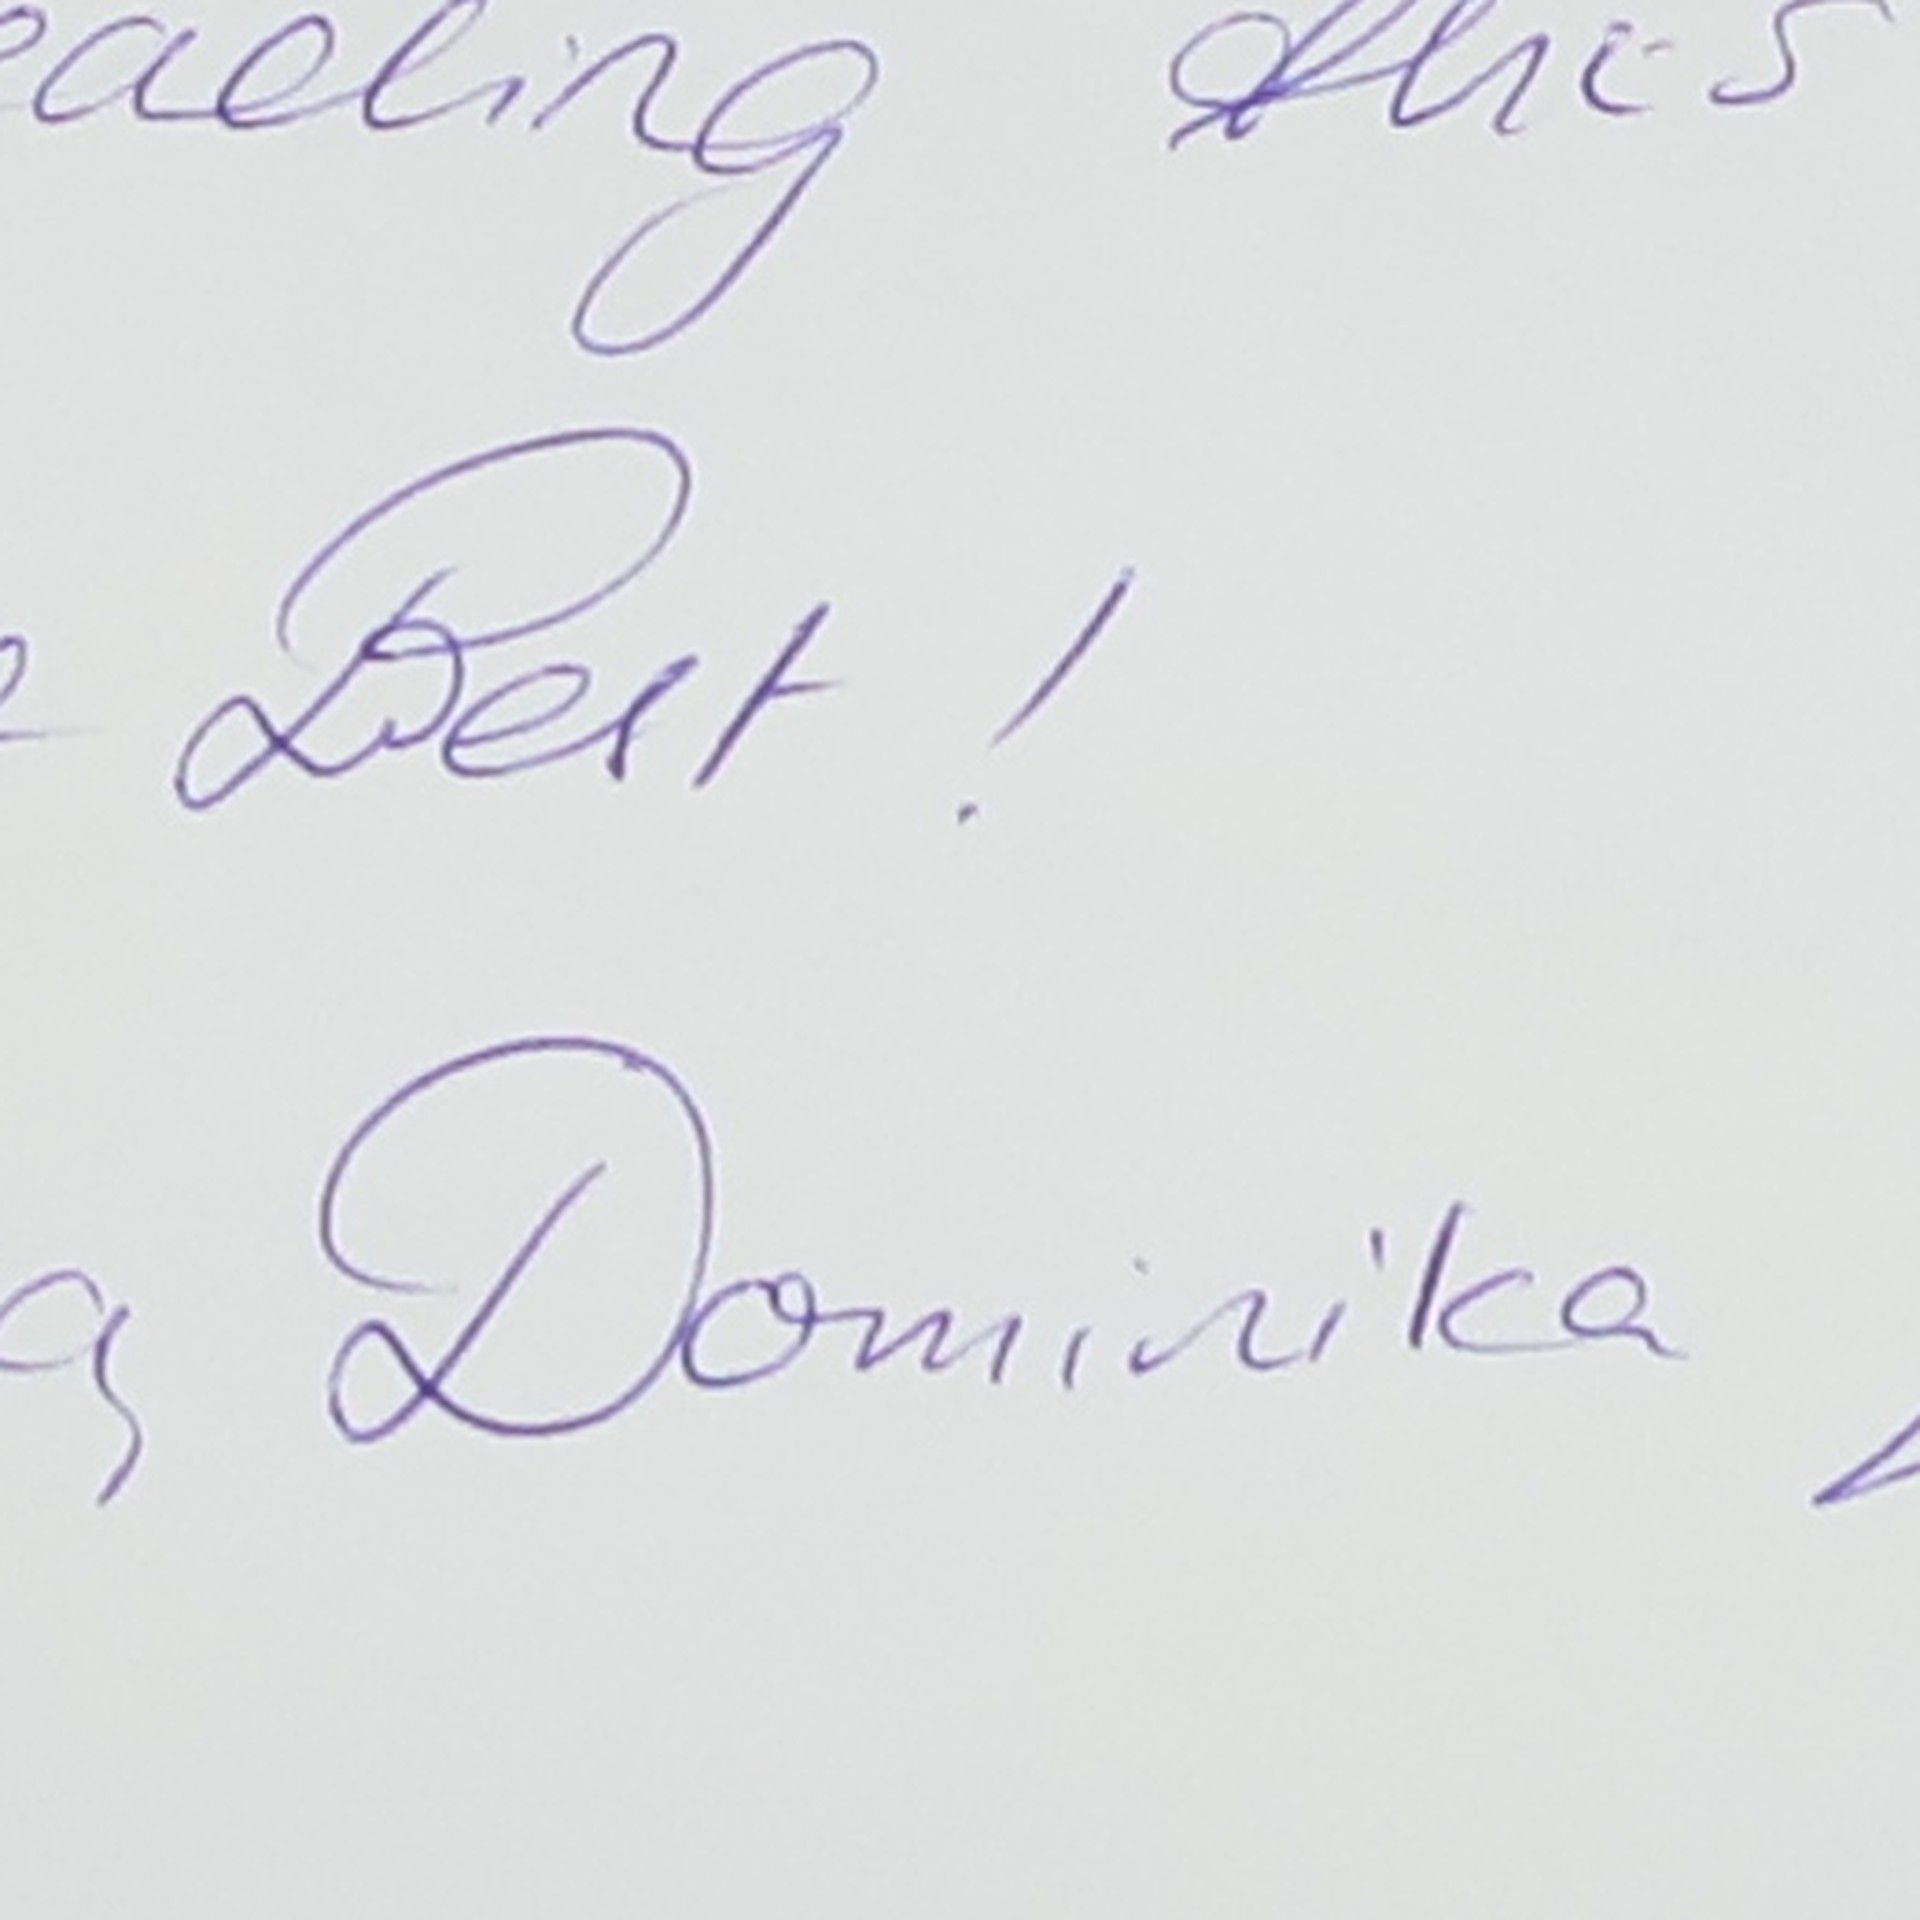 eading this
Best!
Dominika